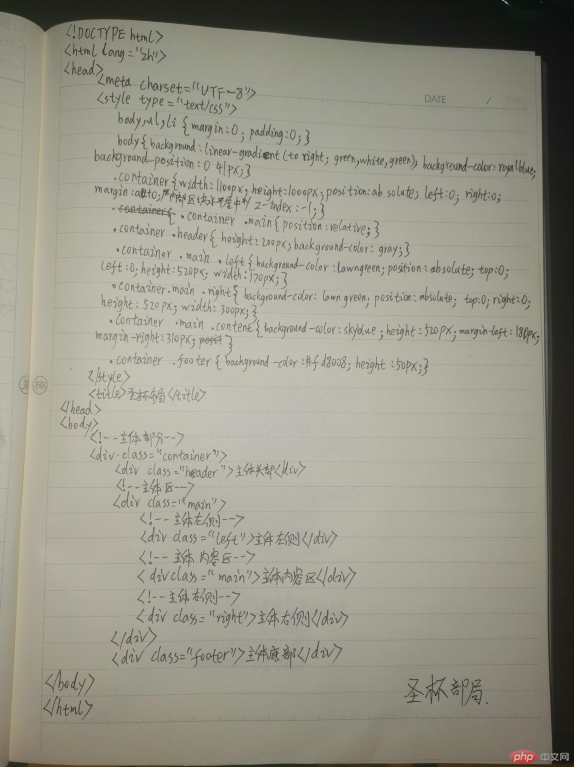 DATE /
<!DOCTYPE html>
<html lang="zh">
<head>
<meta charset="UTF-8">
<style type="text/css">
body,ul,li {margin:0; padding:0;}
body{background:linear-gradient (to right; green,white,green); background-color:royalblue;
background-position:0 41px;}
.container{width:1100px; height:1000px; position:absolute; left:0; right:0;
margin:auto; z-index:-1;}
.container{ .container .main{position:relative;}
.container .header{height:200px; background-color: gray;}
.container .main .left{background-color:lawngreen; position:absolute; top:0;
left:0; height:520px; width:170px;}
.container.main .right{background-color: lawngreen; position: absolute; top:0; right:0;
height: 520px; width: 300px;}
.container .main .content{background-color: skyblue; height:520px; margin-left:180px;
margin-right:310px; }
.container .footer{background-color:#fd8008; height:50px;}
</style>
<title>圣杯布局</title>
</head>
<body>
<!--主体部分-->
<div class="container">
<div class="header">主体头部</div>
<!--主体区-->
<div class="main">
<!--主体左侧-->
<div class="left">主体左侧</div>
<!--主体内容区-->
<div class="main">主体内容区</div>
<!--主体右侧-->
<div class="right">主体右侧</div>
</div>
<div class="footer">主体底部</div>
</body>
</html>
圣杯部局.
php 中文网